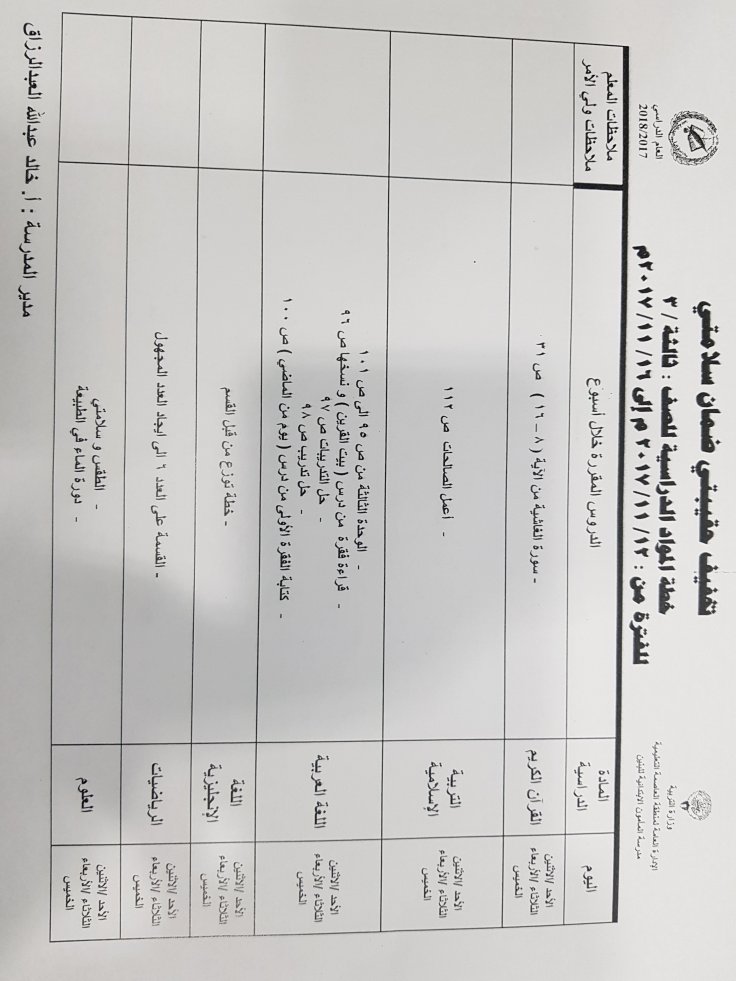 وزارة التربية
الإدارة العامة لمنطقة العاصمة التعليمية
مدرسة المأمون الابتدائية للبنين
تخفيف حقيبتي ضمان سلامتي
خطة المواد الدراسية للصف : ثالثة / ٣
للفترة من : ٢٠١٧/١١/١٢ م إلى ٢٠١٧/١١/١٦م
العام الدراسي
2018/2017
اليوم
المادة
الدراسية
الدروس المقررة خلال أسبوع
ملاحظات المعلم
ملاحظات ولي الأمر
الأحد /الاثنين
الثلاثاء /الأربعاء
الخميس
القرآن الكريم
- سورة الغاشية من الآية ( ٨ – ١٦ ) ص ٣١
الأحد /الاثنين
الثلاثاء /الأربعاء
الخميس
التربية
الإسلامية
- أعمل الصالحات ص ١١٢
الأحد /الاثنين
الثلاثاء /الأربعاء
الخميس
اللغة العربية
- الوحدة الثالثة من ص ٩٥ الى ص ١٠١
- قراءة فقرة من درس ( بيت القرين ) و نسخها ص ٩٦
- حل التدريبات ص ٩٧
- حل تدريب ص ٩٨
- كتابة الفقرة الأولى من درس ( يوم من الماضي ) ص ١٠٠
الأحد /الاثنين
الثلاثاء /الأربعاء
الخميس
اللغة
الإنجليزية
- خطة توزع من قبل القسم
الأحد /الاثنين
الثلاثاء /الأربعاء
الخميس
الرياضيات
- القسمة على العدد ٦ الى ايجاد العدد المجهول
الأحد /الاثنين
الثلاثاء /الأربعاء
الخميس
العلوم
- الطقس و سلامتي
- دورة الماء في الطبيعة
مدير المدرسة : أ. خالد عبدالله العبدالرزاق